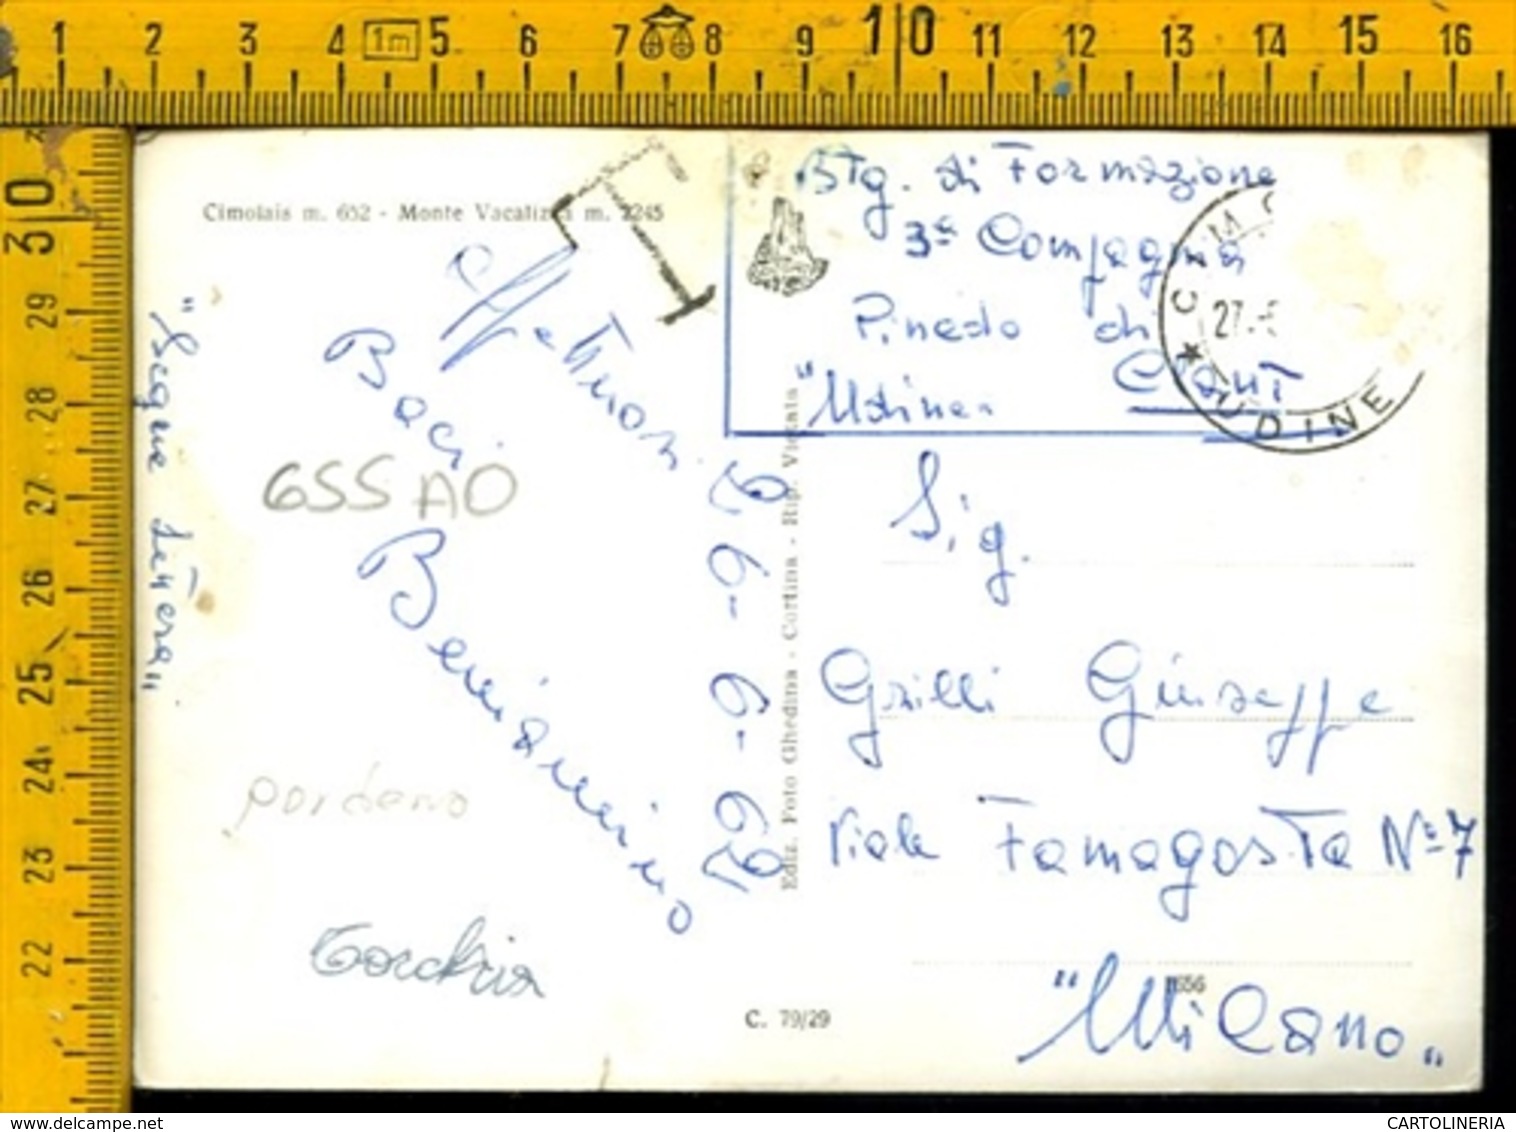 1 2 3 4 1m 5 6 7 8 9 10 11 12 13 14 15 16
30 29 28 27 26 25 24 23 22
Cimolais m. 652 - Monte Vacalizza m. 2245
T
Btg. di Formazione
3ª Compagnia
Pinedo di
Claut
"Udine"
CIMO
27.-6
* UDINE
"Segue lettera"
Affettuosi
Baci
655 AO
Beniamino
26-6-62
Ediz. Foto Ghedina - Cortina - Rip. Vietata
Sig.
Grilli Giuseppe
Viale Famagosta N° 7
"Milano"
1656
C. 79/29
www.delcampe.net
CARTOLINERIA